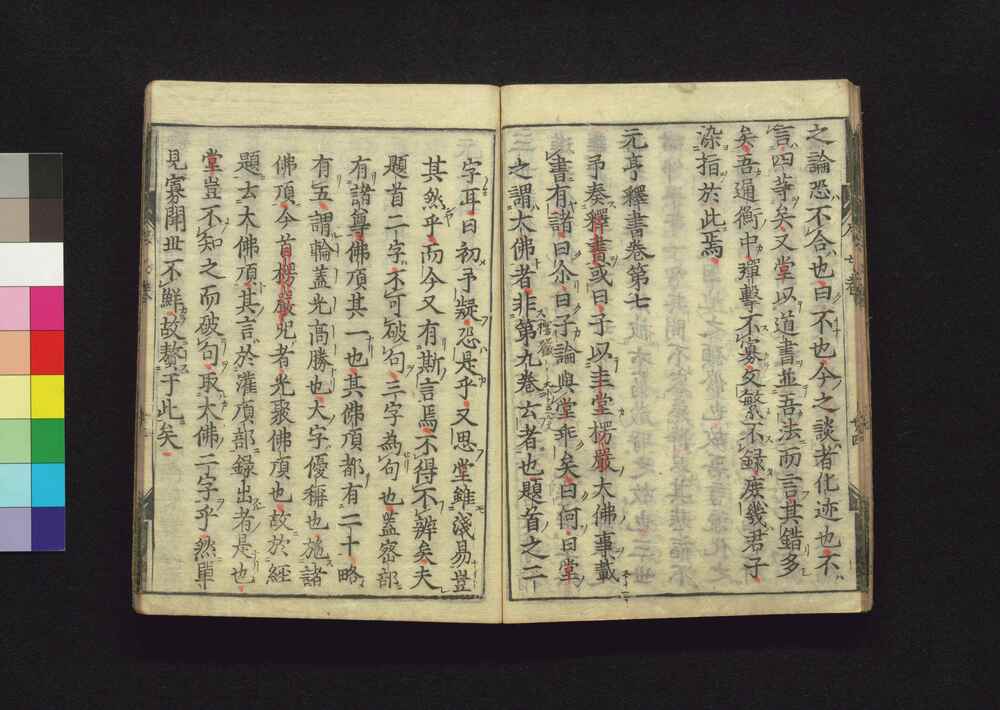 之論恐不合也曰不也今之談者化迹也不
言四等矣又堂以道書並吾法而言其錯多
矣吾通衡中殫擊不寡文繁不録庶幾君子
染指於此焉
元亨釋書巻第七
予奏釋書或曰子以圭堂楞嚴大佛事載
書有諸曰尒曰子論與堂乖矣曰何曰堂
三之謂大佛者非第九巻云者也題首之二
字耳曰初予凝恐是乎又思堂雖淺易豈
其然乎而今又有斯言焉不得不辨矣夫
題首二字不可破句三字為句也盖密部
有諸尊佛頂其一也其佛頂都有二十略
有五謂輪盖光高勝也大字優稱也施諸
佛頂今首楞嚴呪者光聚佛頂也故於經
題云大佛頂其言於灌頂部録出者是也
堂豈不知之而破句取大佛二字乎然單
見寡聞世不鮮故贅于此矣